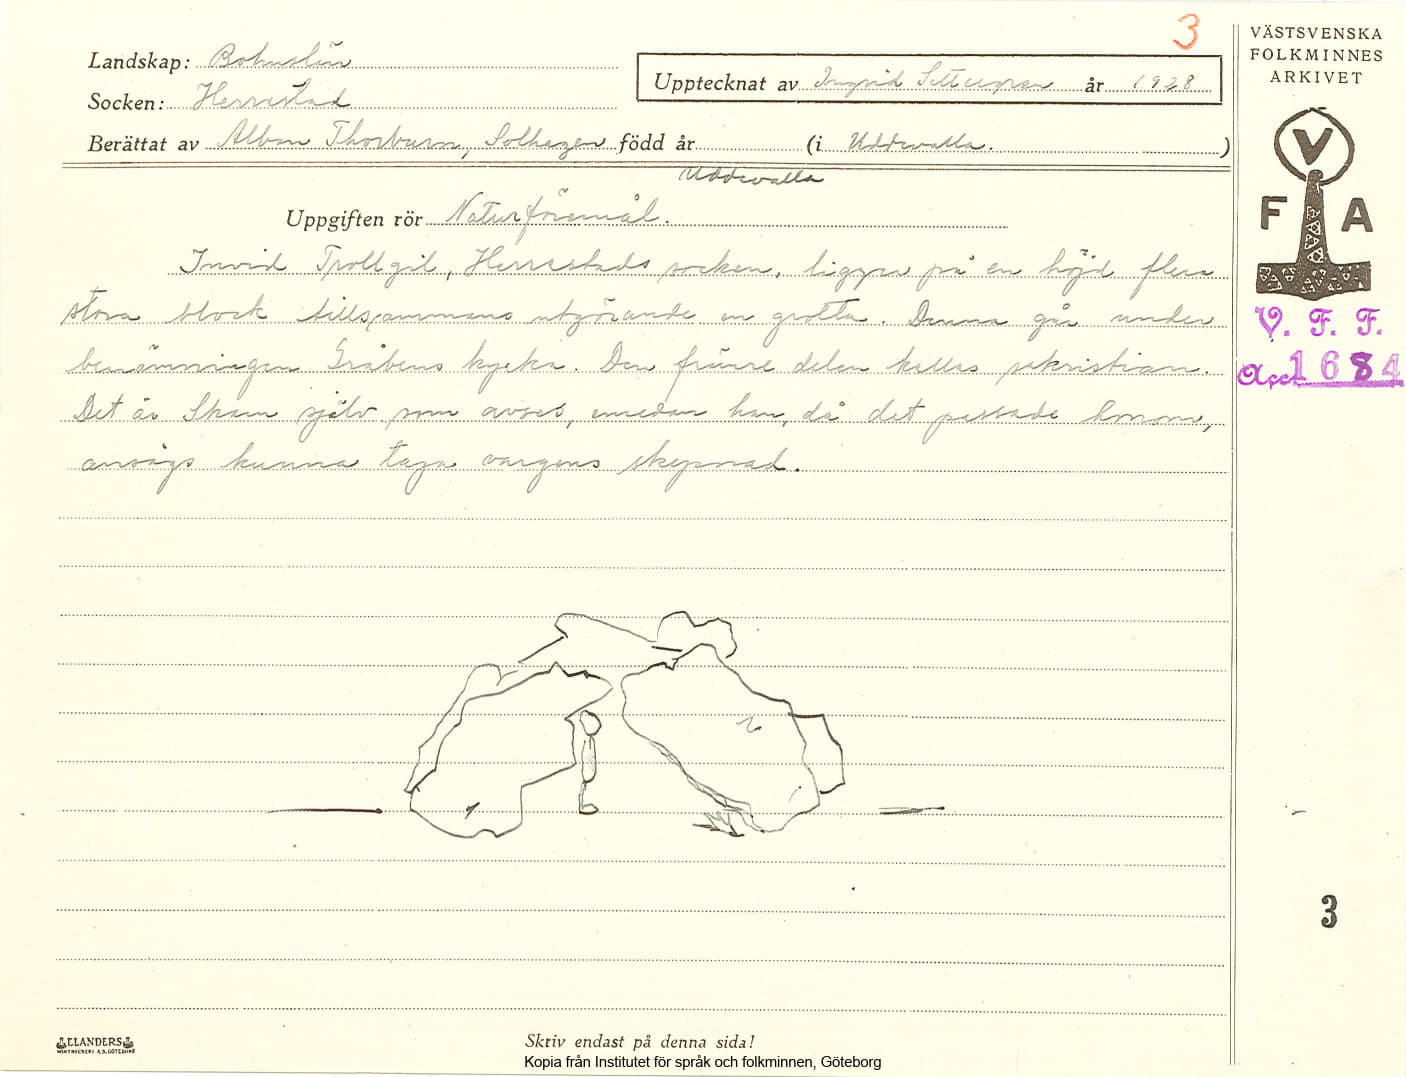 3
Landskap: Bohuslän
Socken: Herrestad
Upptecknat av Ingrid år 1928
Berättat av Alban Thorburn, Solhagen född år (i Uddevalla.)
Uddevalla
Uppgiften rör Naturföremål.
Invid Trollgil, Herrestads socken, ligger på en höjd flera
stora block tillsammans utgörande en grotta. Denna går under
benämningen Gråbens kyrka. Den främre delen kallas sakristian.
Det är Skam själv, som avses, emedan han, då det passade honom,
ansågs kunna taga vargens skepnad.
VÄSTSVENSKA
FOLKMINNES
ARKIVET
V
F A
V. F. F.
Acc. 1684
3
ELANDERS
BOKTRYCKERI A.B. GÖTEBORG
Skriv endast på denna sida!
Kopia från Institutet för språk och folkminnen, Göteborg